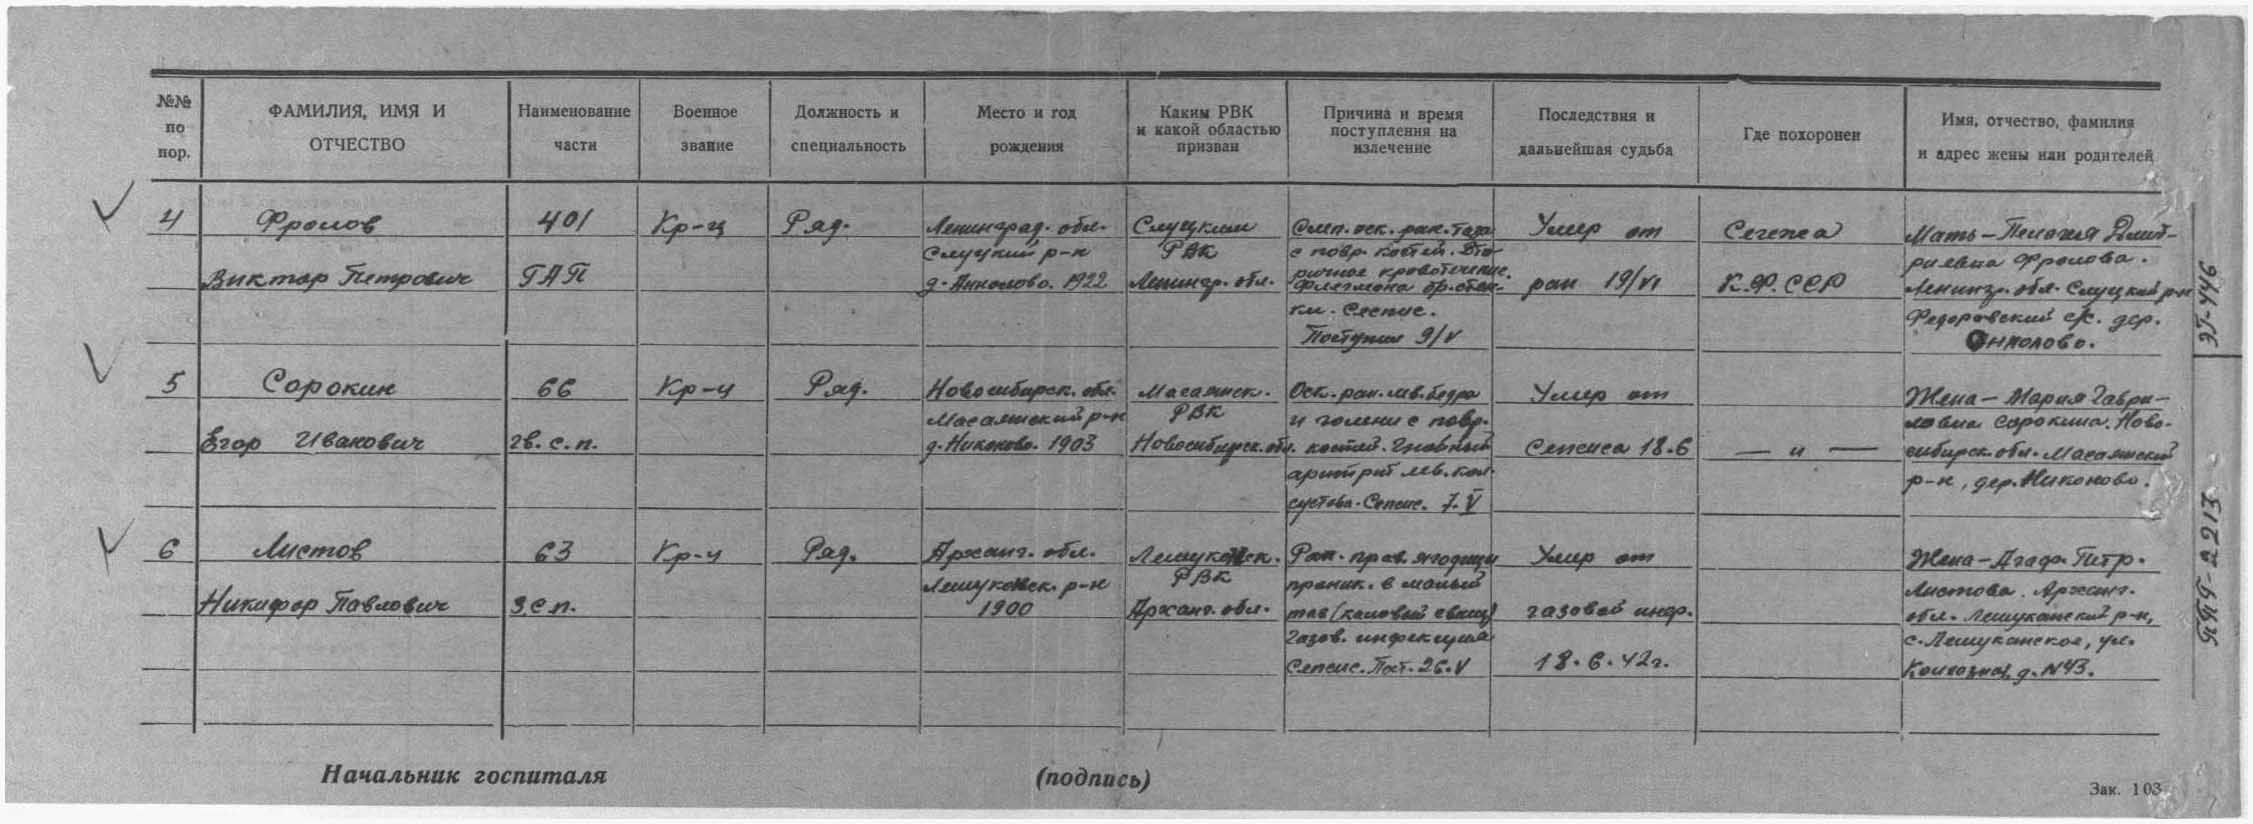 №№ по пор.
ФАМИЛИЯ, ИМЯ И ОТЧЕСТВО
Наименование части
Военное звание
Должность и специальность
Место и год рождения
Каким РВК и какой областью призван
Причина и время поступления на излечение
Последствия и дальнейшая судьба
Где похоронен
Имя, отчество, фамилия и адрес жены или родителей
4
Фролов
Виктор Петрович
401
ГАП
Кр-ц
Ряд.
Ленинград. обл.
Слуцкий р-н
д. Анколово. 1922
Слуцким
РВК
Ленингр. обл.
Слеп. оск. ран. таза
с повр. костей. Вто-
ричное кровотечение.
Флегмона бр. стен-
ки. Сепсис.
Поступил 9/V
Умер от
ран 19/VI
Сегежа
К.Ф.ССР
Мать - Пелагея Дмит-
риевна Фролова.
Ленингр. обл. Слуцкий р-н
Федоровский с/с. дер.
Анколово.
5
Сорокин
Егор Иванович
66
гв. с. п.
Кр-ц
Ряд.
Новосибирск. обл.
Масаянский р-н
д. Никоново. 1903
Масаянск.
РВК
Новосибирск. обл.
Оск. ран. лев. бедра
и голени с повр.
костей. Гнойный
артрит лев. кол.
сустава. Сепсис. 7.V
Умер от
Сепсиса 18.6
— и —
Жена - Мария Гаври-
ловна Сорокина. Ново-
сибирск. обл. Масаянский
р-н, дер. Никоново.
6
Листов
Никифор Павлович
63
з.с.п.
Кр-ц
Ряд.
Арханг. обл.
Лешуконск. р-н
1900
Лешуконск.
РВК
Арханг. обл.
Ран. прав. ягодицы
проник. в малый
таз (каловый свищ)
Газов. инфекция
Сепсис. Пост. 26.V
Умер от
газовой инф.
18.6.42г.
Жена - Агаф. Петр.
Листова. Арханг.
обл. Лешуканский р-н,
с. Лешуканское, ул.
Колхозная, д. №43.
ЭГ-446
ППГ-2213
Начальник госпиталя
(подпись)
Зак. 103